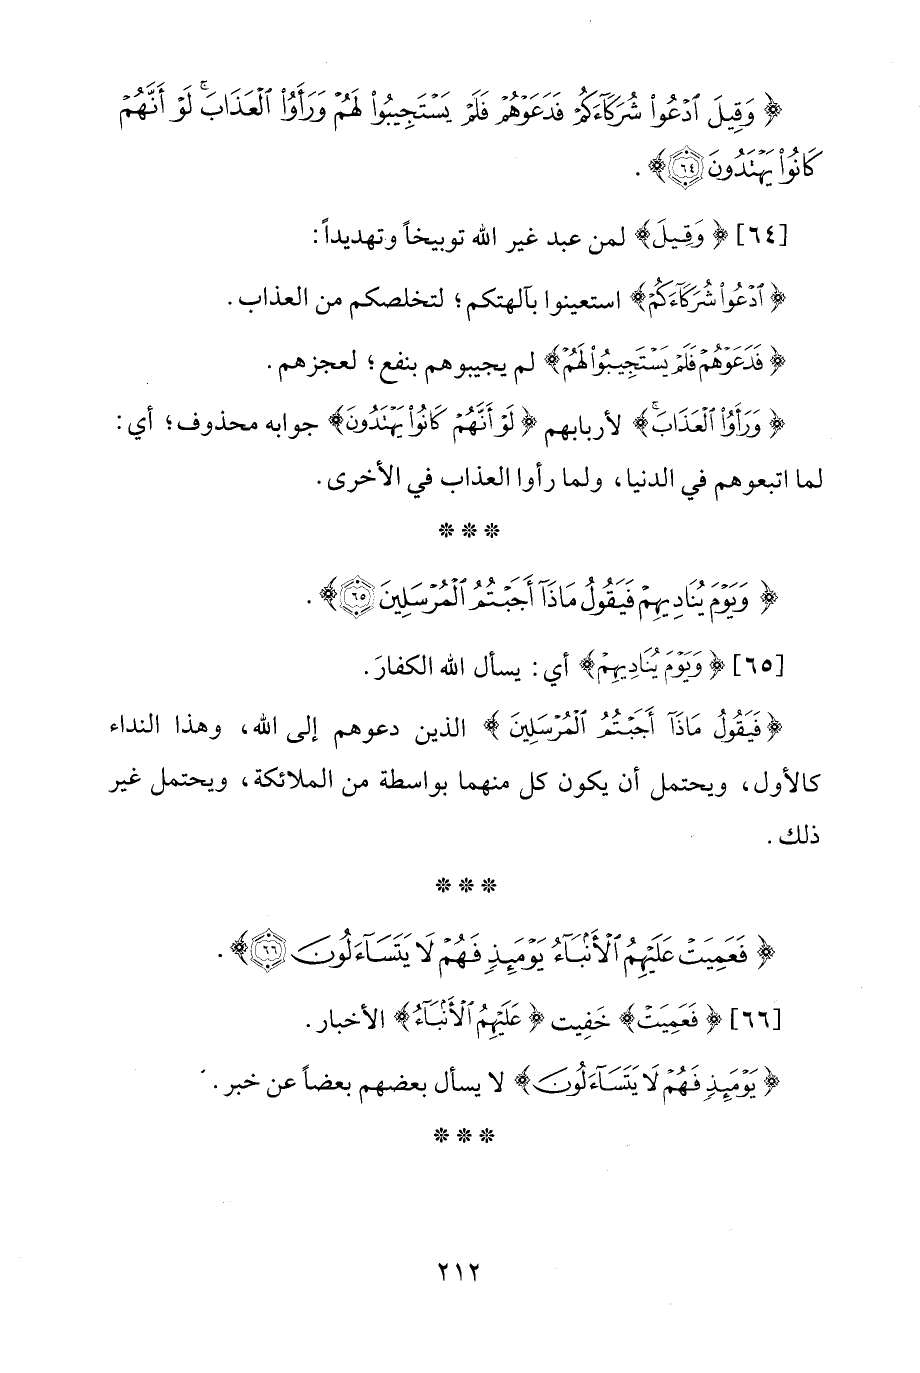 ﴿ وَقِيلَ ٱدْعُواْ شُرَكَآءَكُمْ فَدَعَوْهُمْ فَلَمْ يَسْتَجِيبُواْ لَهُمْ وَرَأَوُاْ ٱلْعَذَابَۚ لَوْ أَنَّهُمْ
كَانُواْ يَهْتَدُونَ ٦٤﴾ .
[٦٤] ﴿ وَقِيلَ﴾ لمن عبد غير الله توبيخاً وتهديداً:
﴿ ٱدْعُواْ شُرَكَآءَكُمْ﴾ استعينوا بآلهتكم؛ لتخلصكم من العذاب.
﴿ فَدَعَوْهُمْ فَلَمْ يَسْتَجِيبُواْ لَهُمْ﴾ لم يجيبوهم بنفع؛ لعجزهم.
﴿ وَرَأَوُاْ ٱلْعَذَابَۚ﴾ لأربابهم ﴿ لَوْ أَنَّهُمْ كَانُواْ يَهْتَدُونَ﴾ جوابه محذوف؛ أي:
لما اتبعوهم في الدنيا، ولما رأوا العذاب في الأخرى.
* * *
﴿ وَيَوْمَ يُنَادِيهِمْ فَيَقُولُ مَاذَآ أَجَبْتُمُ ٱلْمُرْسَلِينَ ٦٥﴾ .
[٦٥] ﴿ وَيَوْمَ يُنَادِيهِمْ﴾ أي: يسأل الله الكفارَ.
﴿ فَيَقُولُ مَاذَآ أَجَبْتُمُ ٱلْمُرْسَلِينَ ﴾ الذين دعوهم إلى الله، وهذا النداء
كالأول، ويحتمل أن يكون كل منهما بواسطة من الملائكة، ويحتمل غير
ذلك.
* * *
﴿ فَعَمِيَتْ عَلَيْهِمُ ٱلْأَنۢبَآءُ يَوْمَئِذٍ فَهُمْ لَا يَتَسَآءَلُونَ ٦٦﴾ .
[٦٦] ﴿ فَعَمِيَتْ﴾ خَفِيت ﴿ عَلَيْهِمُ ٱلْأَنۢبَآءُ﴾ الأخبار.
﴿ يَوْمَئِذٍ فَهُمْ لَا يَتَسَآءَلُونَ﴾ لا يسأل بعضهم بعضاً عن خبر.
* * *
٢١٢